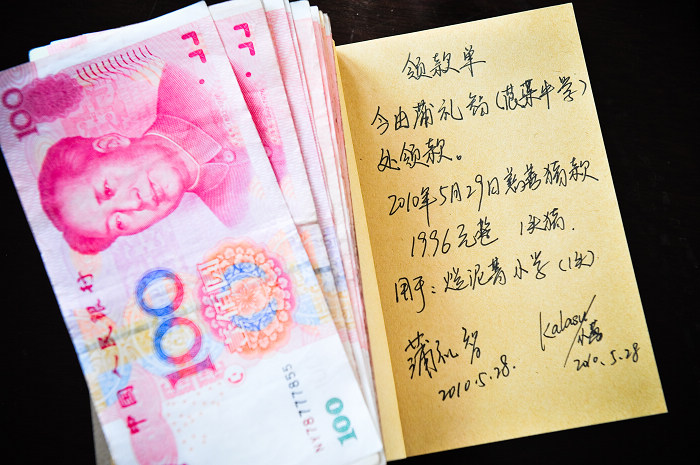 100
中国人民银行
100
100
NY78777855
领款单
今由蒲礼智(蔬菜中学)
处领款。
2010年5月29日慈善猪款
1996元整 1头猪.
用于: 烂泥箐小学(1头)
蒲礼智
2010.5.28.
Kalasu
2010.5.28